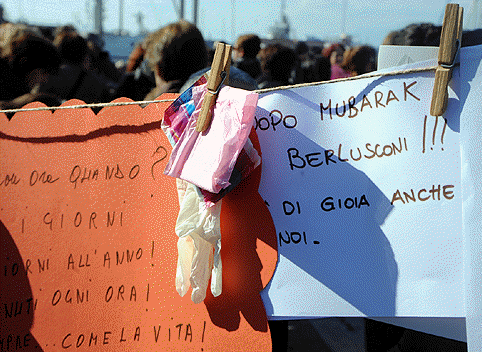 ORA QUANDO?
I GIORNI
GIORNI ALL'ANNO!
OGNI ORA!
... COME LA VITA!
DOPO MUBARAK
BERLUSCONI!!!
DI GIOIA ANCHE
NOI.